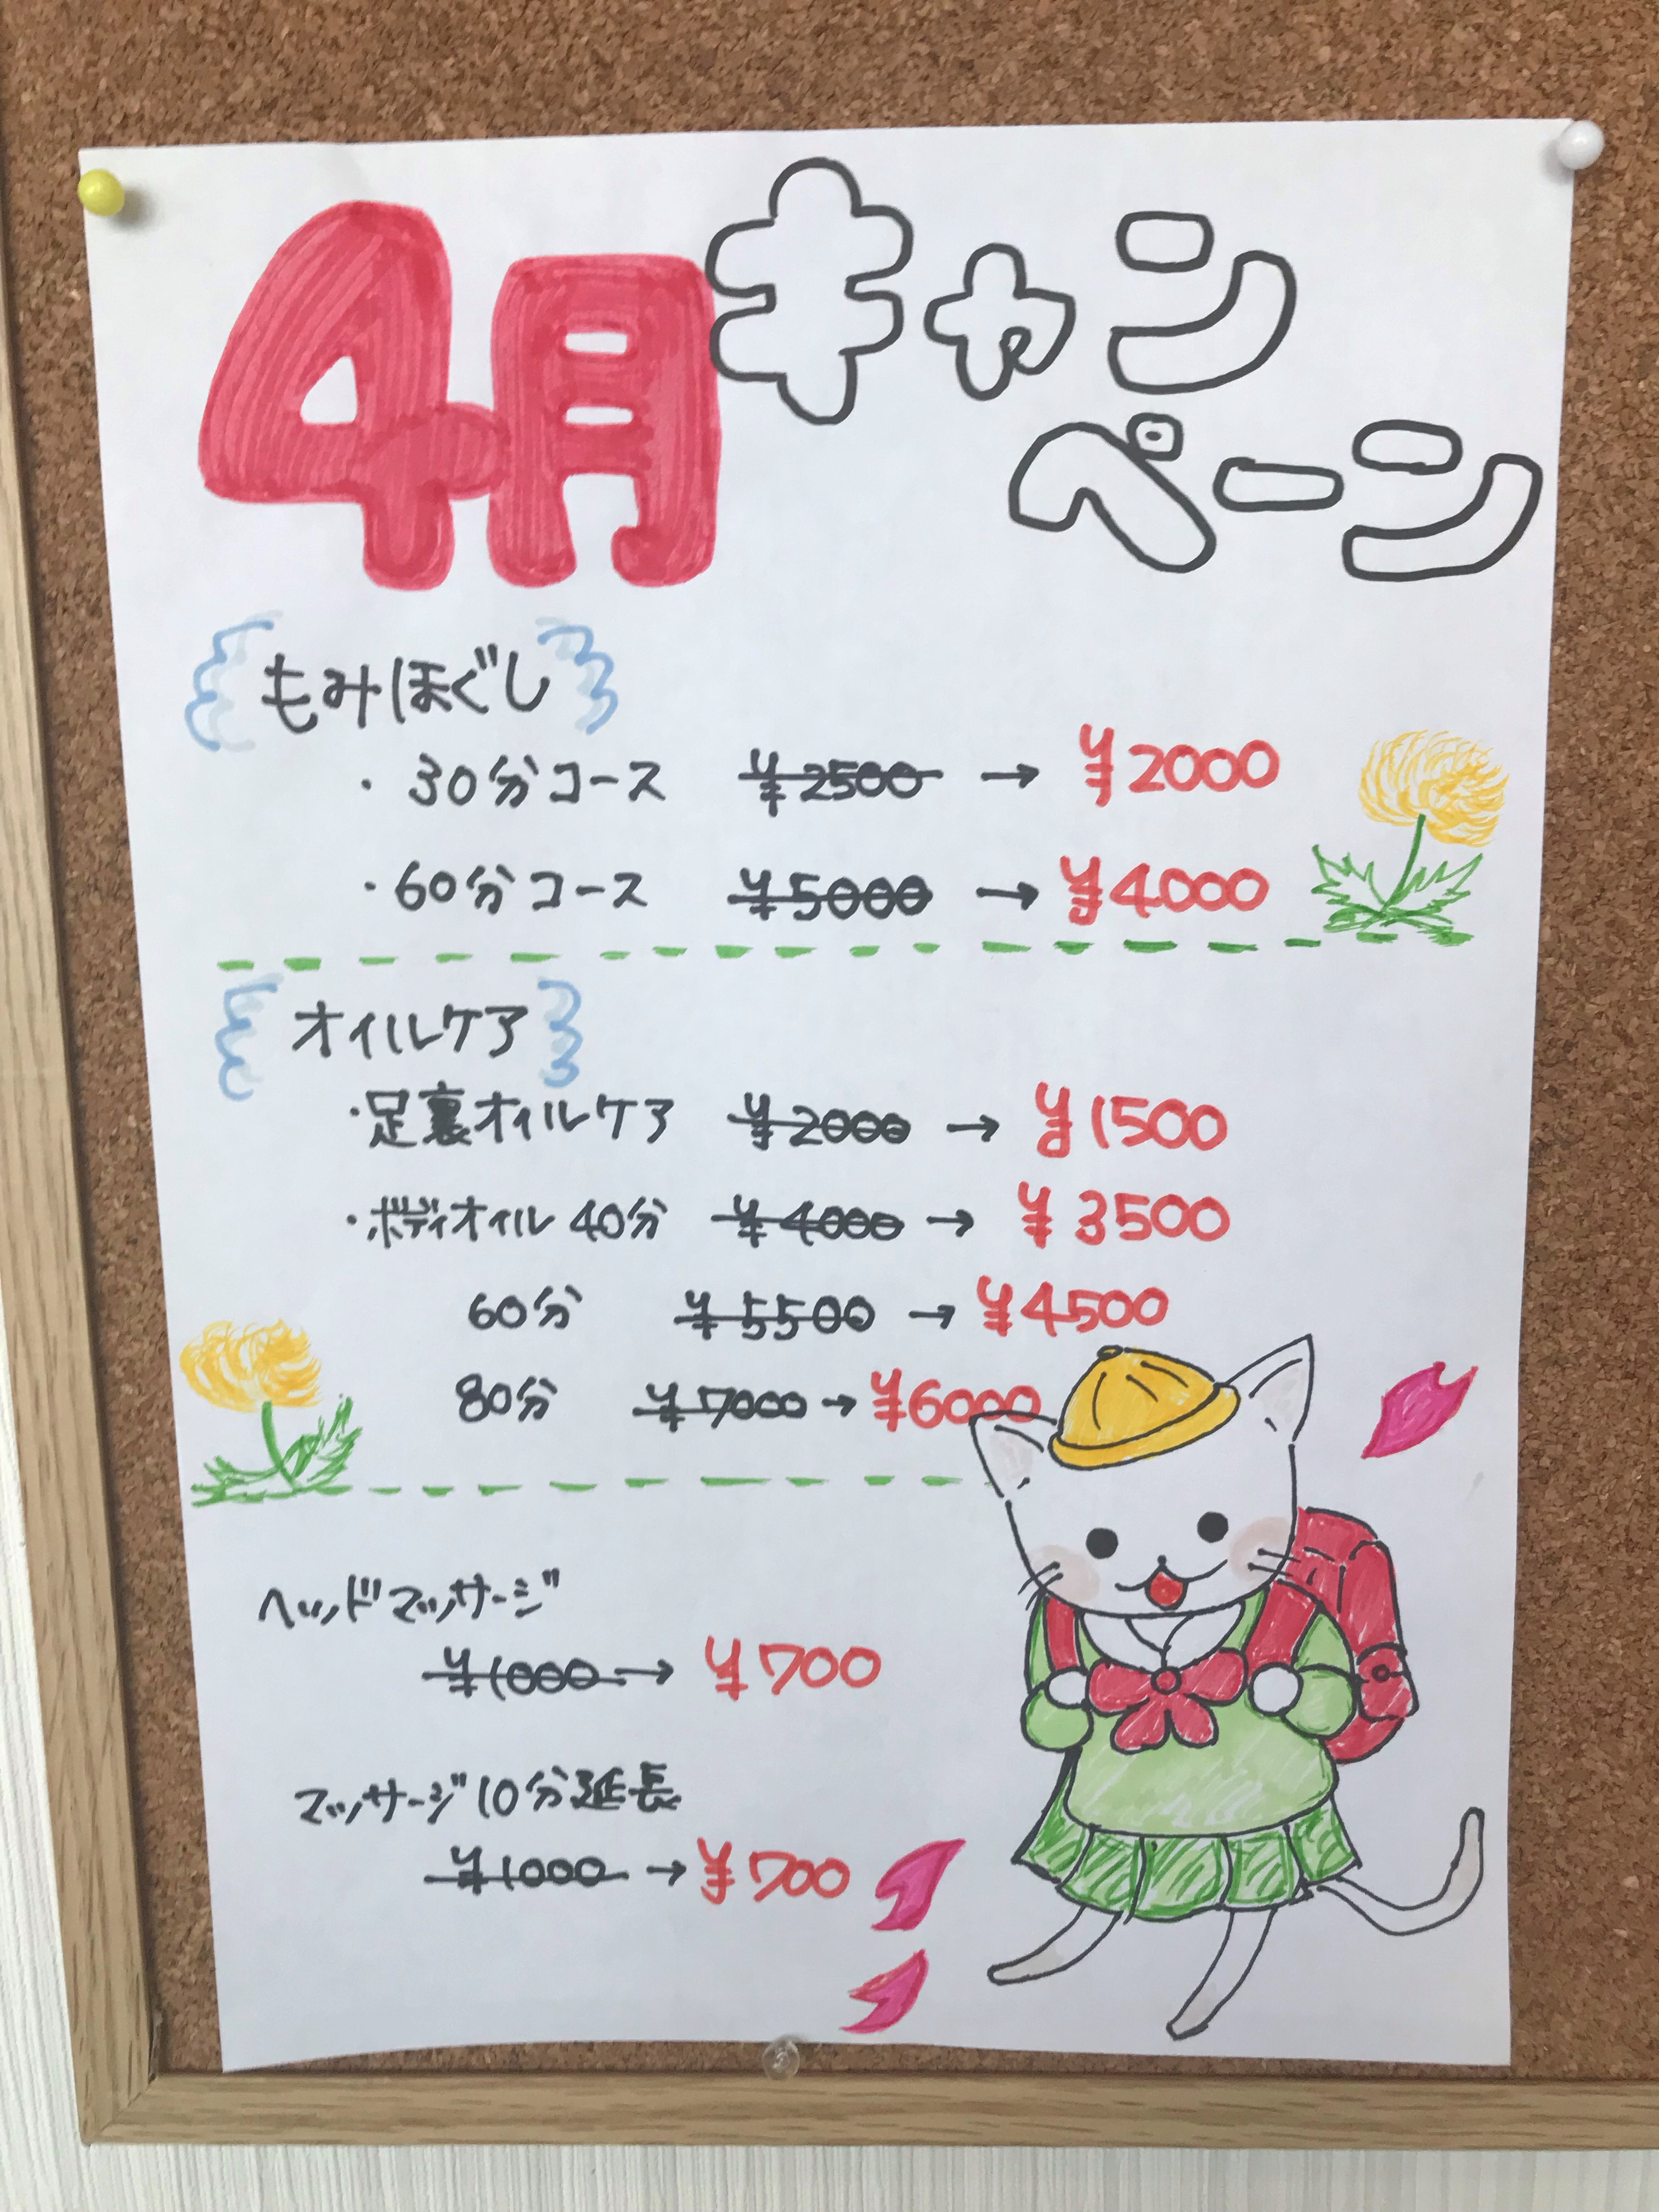 4月キャン
ペーン
もみほぐし
・30分コース ¥2500 → ¥2000
・60分コース ¥5000 → ¥4000
オイルケア
・足裏オイルケア ¥2000 → ¥1500
・ボディオイル 40分 ¥4000 → ¥3500
60分 ¥5500 → ¥4500
80分 ¥7000 → ¥6000
ヘッドマッサージ
¥1000 → ¥700
マッサージ10分延長
¥1000 → ¥700